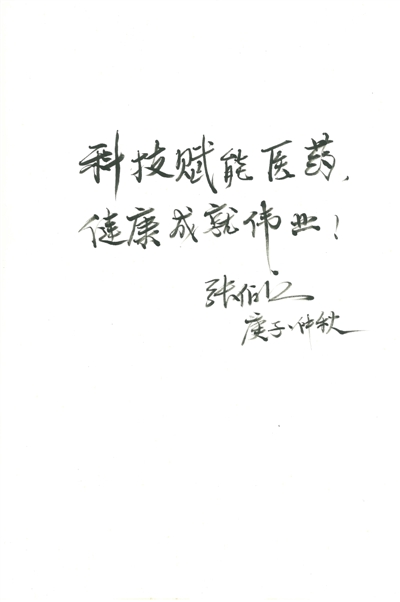 科技赋能医药，
健康成就伟业！
张伯礼
庚子·仲秋